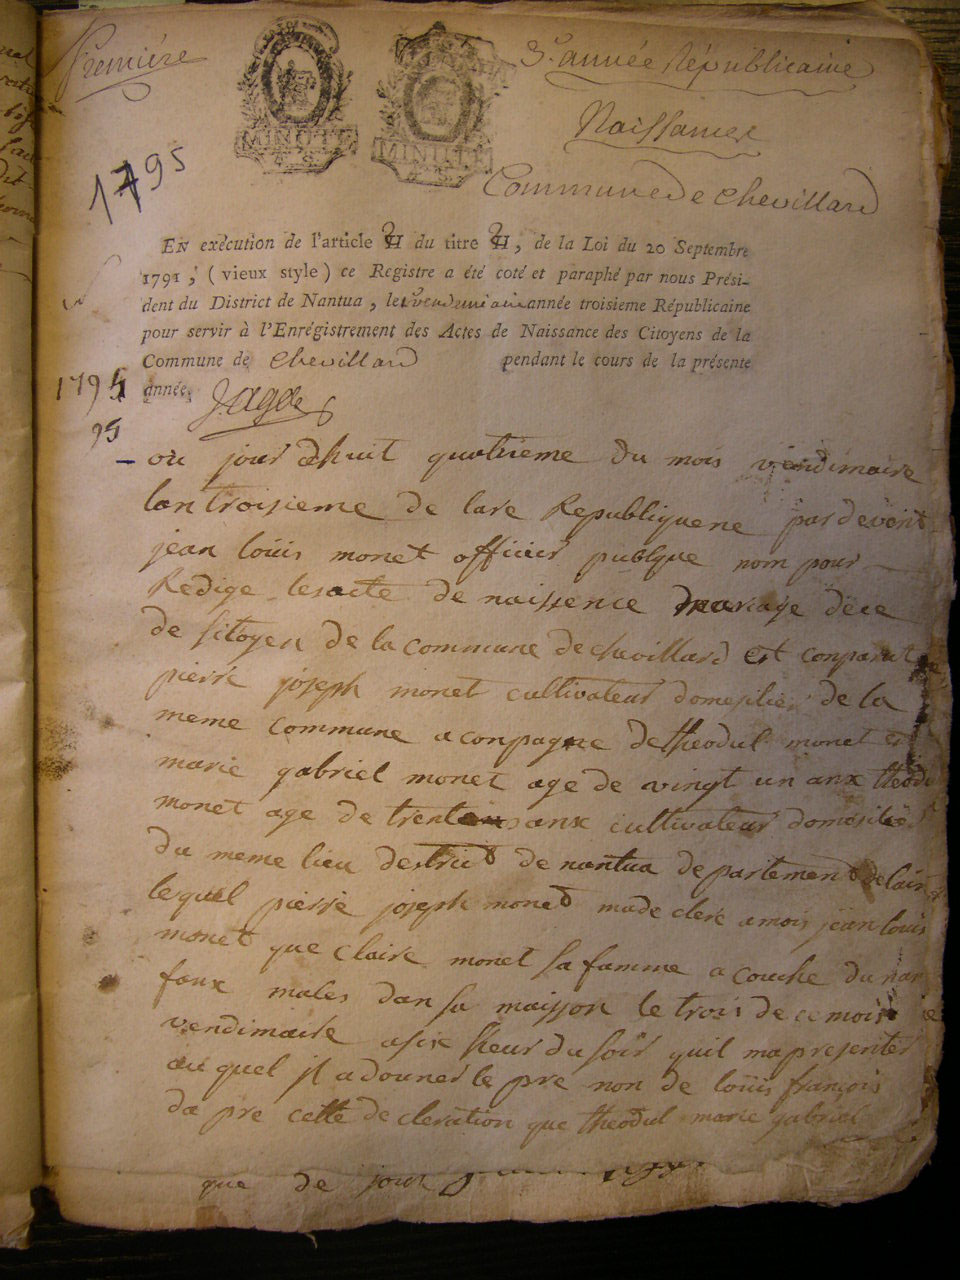 Première
3e année Républicaine
MINUTE
4 S.
MINUTE
4 S.
Naissances
Commune de Chevillard
1795
EN exécution de l'article II du titre II, de la Loi du 20 Septembre
1791, (vieux style) ce Registre a été coté et paraphé par nous Prési-
dent du District de Nantua, le 1er vendemiaire année troisieme Républicaine
pour servir à l'Enrégistrement des Actes de Naissance des Citoyens de la
Commune de Chevillard pendant le cours de la présente
1794 année.
95
ou jour dhuit quatrieme du mois vendimaire
lan troisieme de lare Republiquene par devent
jean loüis monet officier publque nom pour
Redige lesacte de naissence mariage dëce
de sitoyen de la commune de chevillard est conparut
pierre joseph monet cultivateur domesilier de la
meme commune aconpagne de theodul monet et
marie gabriel monet age de vingt un anx theodu
monet age de anx cultivateur domesilie
du meme lieu destrict de nantua departement de lain
lequel pierre joseph monet made clere amois jean louis
monet que claire monet sa famme a couche du nan
fanx males dan sa maison le trois de ce mois
vendimaire asix heur du soir quil ma presenter
au quel jl a douner le pre non de loüis françois
da pre cette decleration que theodul marie gabriel
que de jour